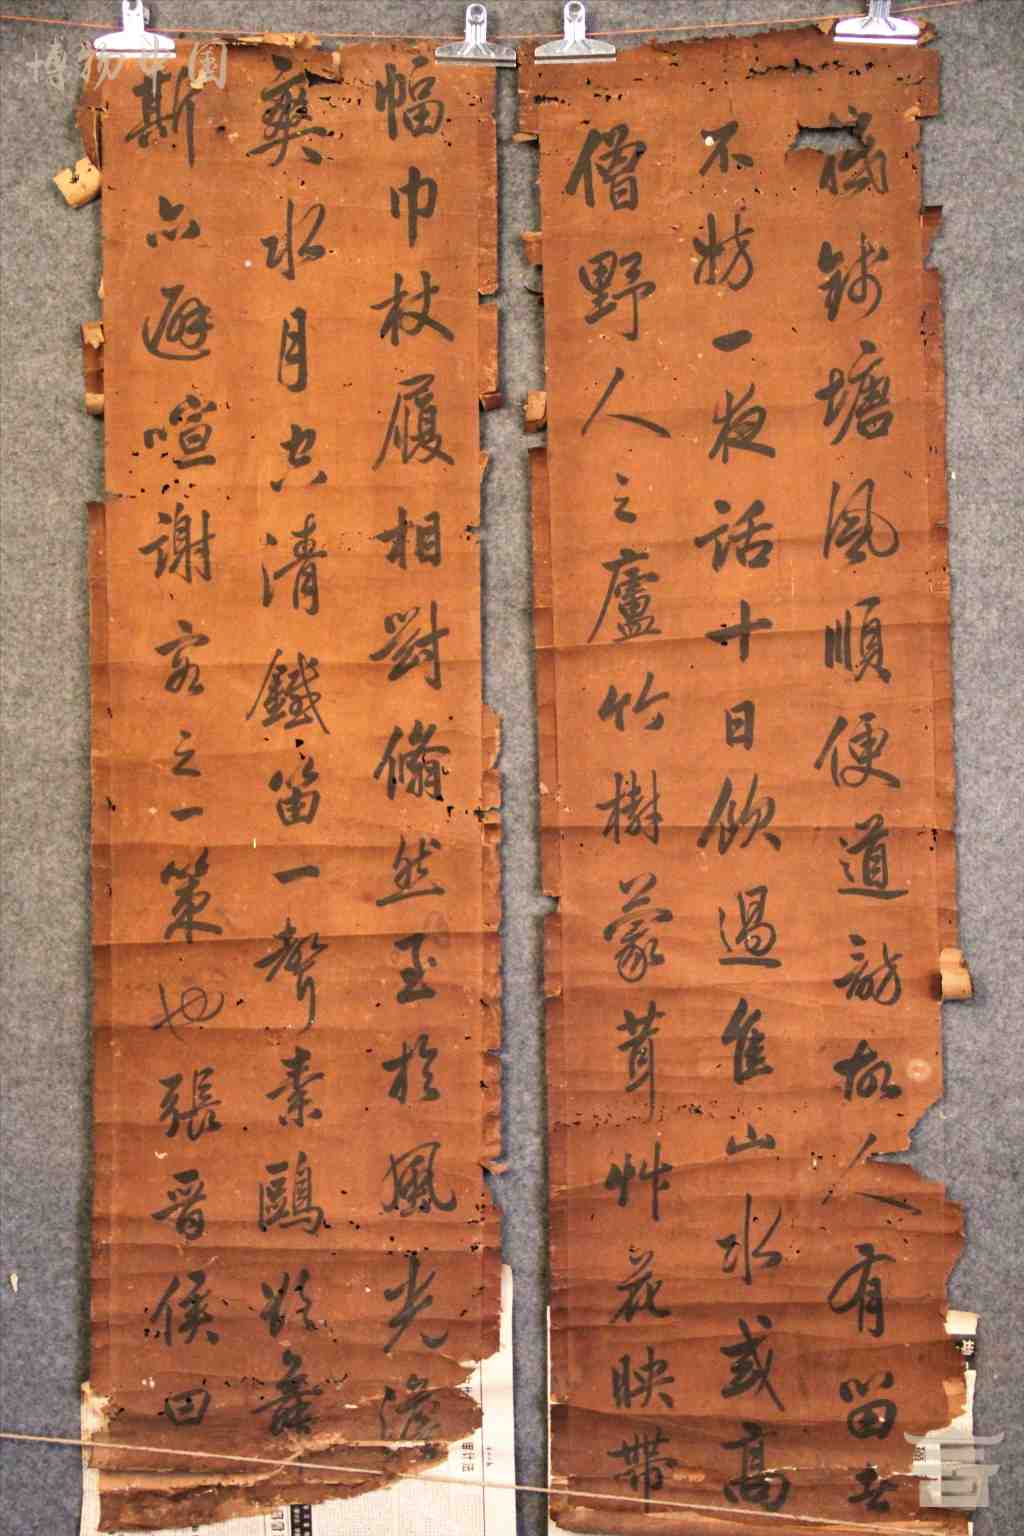 博物中国
錢塘風順便道訪故人有留者
不妨一夜話十日飲過佳山水或高
僧野人之廬竹樹蒙茸艸花映帶
幅巾杖履相對翛然至於風光澹
爽水月空清鐵笛一聲素鷗欲舞
斯亦避喧謝客之一策也張晉侯曰